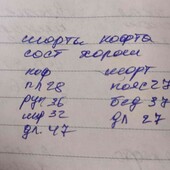 шорты кофта
сост хорош
коф шорт
пл 28 пояс 27
рук 36 бед 37
шир 32 дл 27
дл. 47